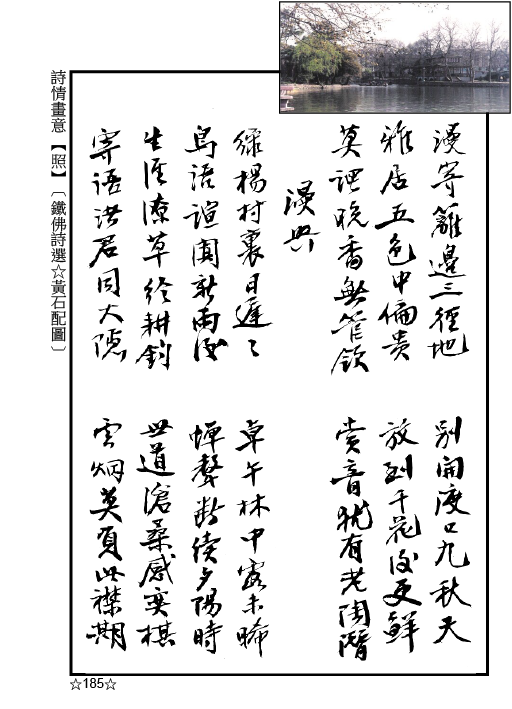 漫寄籬邊三徑地
別開度口九秋天
雅居五色中偏貴
放到千花後更鮮
莫謂晚香無管領
賞音猶有老陶潛
漫興
綠楊村裏日遲〻
卓午林中露未晞
鳥語諠闐新雨後
蟬聲斷續夕陽時
生涯潦草給耕釣
世道滄桑感奕棋
寄語諸君同大隱
雲烟莫負此襟期
詩情畫意【照】〔鐵佛詩選☆黃石配圖〕
☆185☆